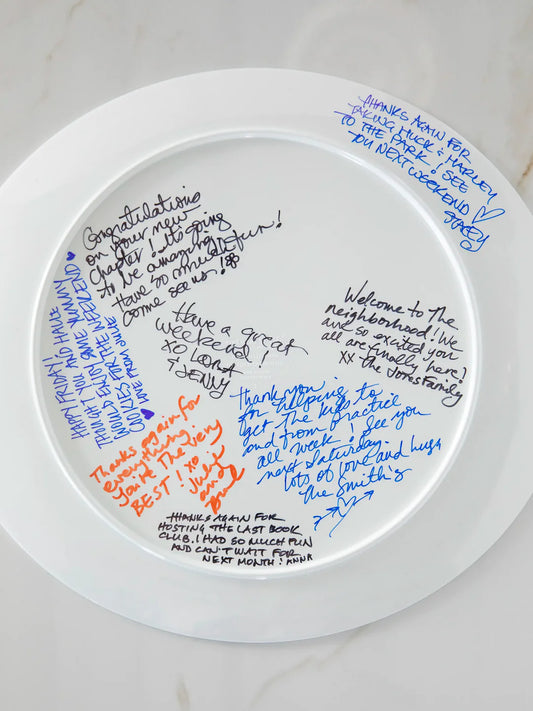 THANKS AGAIN FOR
TAKING HUCK & HARLEY
TO THE PARK! SEE
YOU NEXT WEEKEND
STACEY
Congratulations
on your new
Chapter! It's going
to be amazing!
Have so much fun!
come see us!
HAPPY FRIDAY!
THOUGHT YOU AND HALLE
WOULD ENJOY SOME YUMMY
GOODIES FOR THE WEEKEND
LOVE FROM JULIE
Have a great
weekend!
XO
+ JENNY
Welcome to The
neighborhood! We
are so excited you
all are finally here!
XX The Jones Family
Thank you
for helping to
get the kids to
and from practice
all week! See you
next Saturday.
lots of love and hugs
The Smith's
Thanks again for
everything.
You're The Very
BEST! XO
Julie
and
THANKS AGAIN FOR
HOSTING THE LAST BOOK
CLUB. I HAD SO MUCH FUN
AND CAN'T WAIT FOR
NEXT MONTH! ANNA